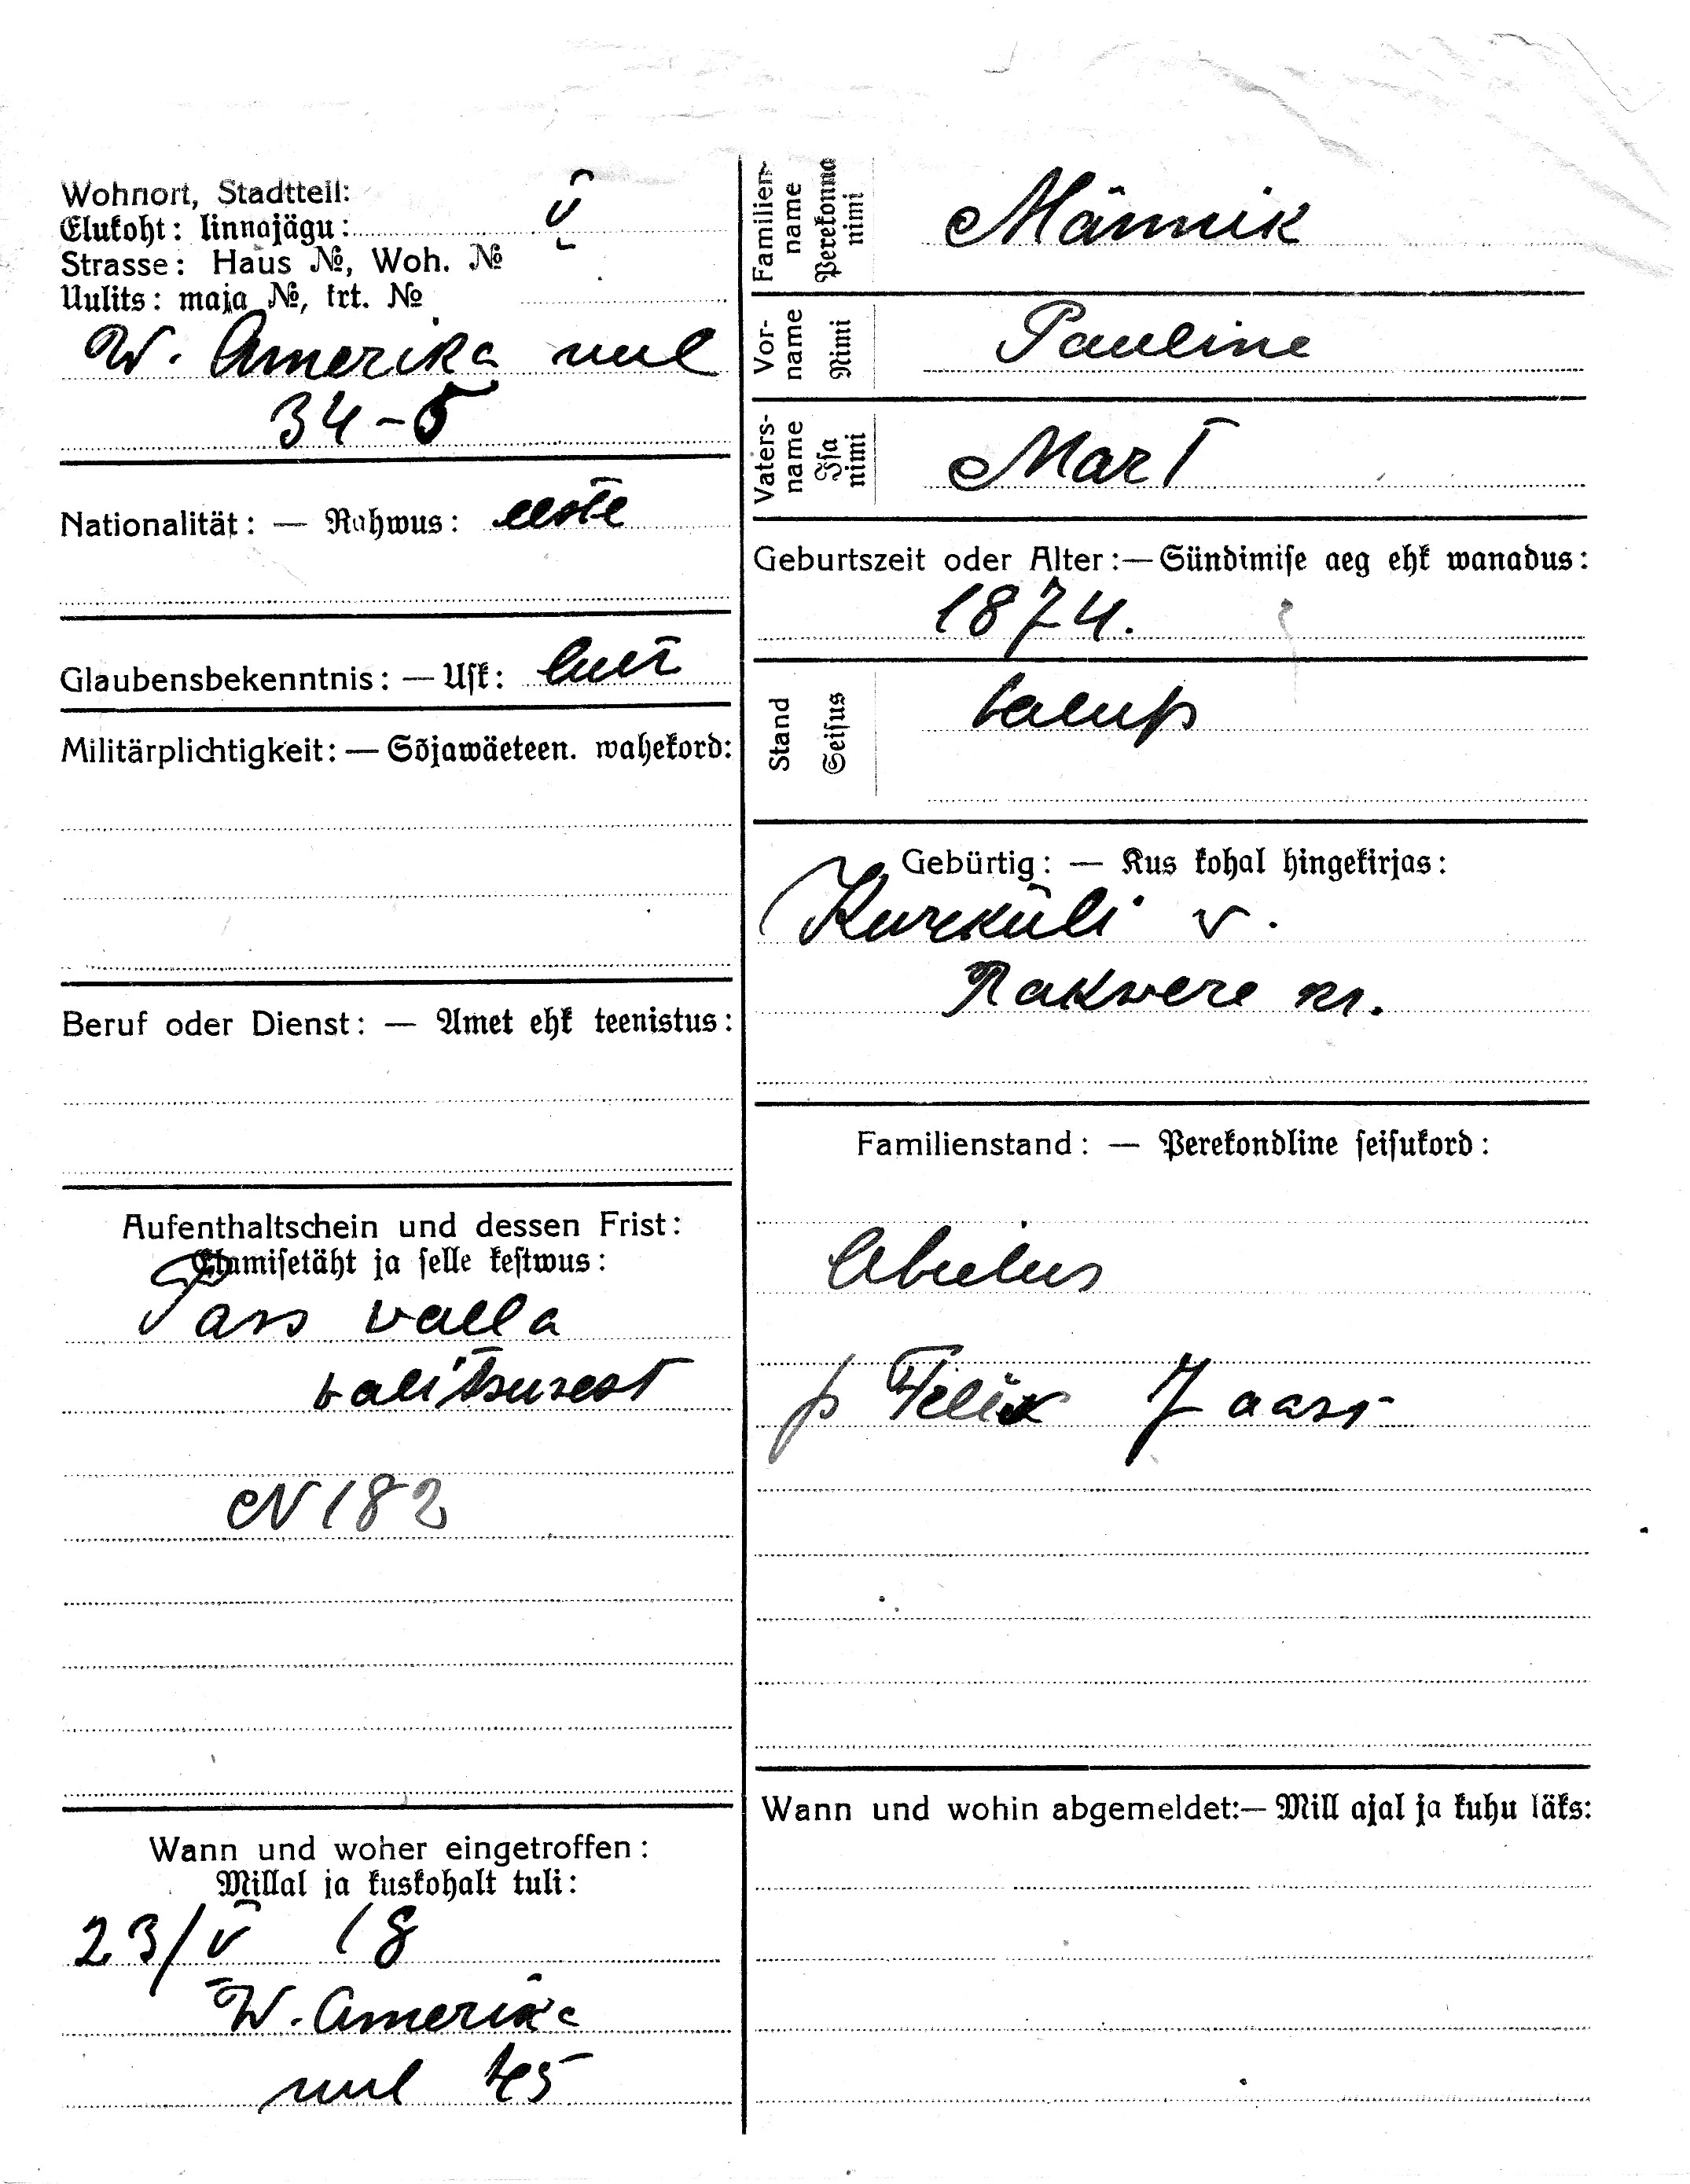 Wohnort, Stadtteil:
Elukoht: linnajägu: V
Strasse: Haus №, Woh. №
Uulits: maja №, krt. №
W. Amerika uul
34-5
Nationalität: — Rahwus: eeste
Glaubensbekenntnis: — Usk: lut
Militärplichtigkeit: — Sõjawäeteen. wahekord:
Beruf oder Dienst: — Amet ehk teenistus:
Aufenthaltschein und dessen Frist:
Elamisetäht ja selle kestwus:
Pass valla
valitsusest
N 182
Wann und woher eingetroffen:
Millal ja kuskohalt tuli:
23/V 18
W. Amerika
uul 45
Familien-
name
Perekonna
nimi
Männik
Vor-
name
Nimi
Pauline
Vaters-
name
Isa
nimi
Mart
Geburtszeit oder Alter:— Sündimise aeg ehk wanadus:
1874.
Stand
Seisus
talup
Gebürtig: — Kus kohal hingekirjas:
Kurküli v.
Rakvere kr.
Familienstand: — Perekondline seisukord:
Abielus
p Felix Jaan
Wann und wohin abgemeldet:— Mill ajal ja kuhu läks: